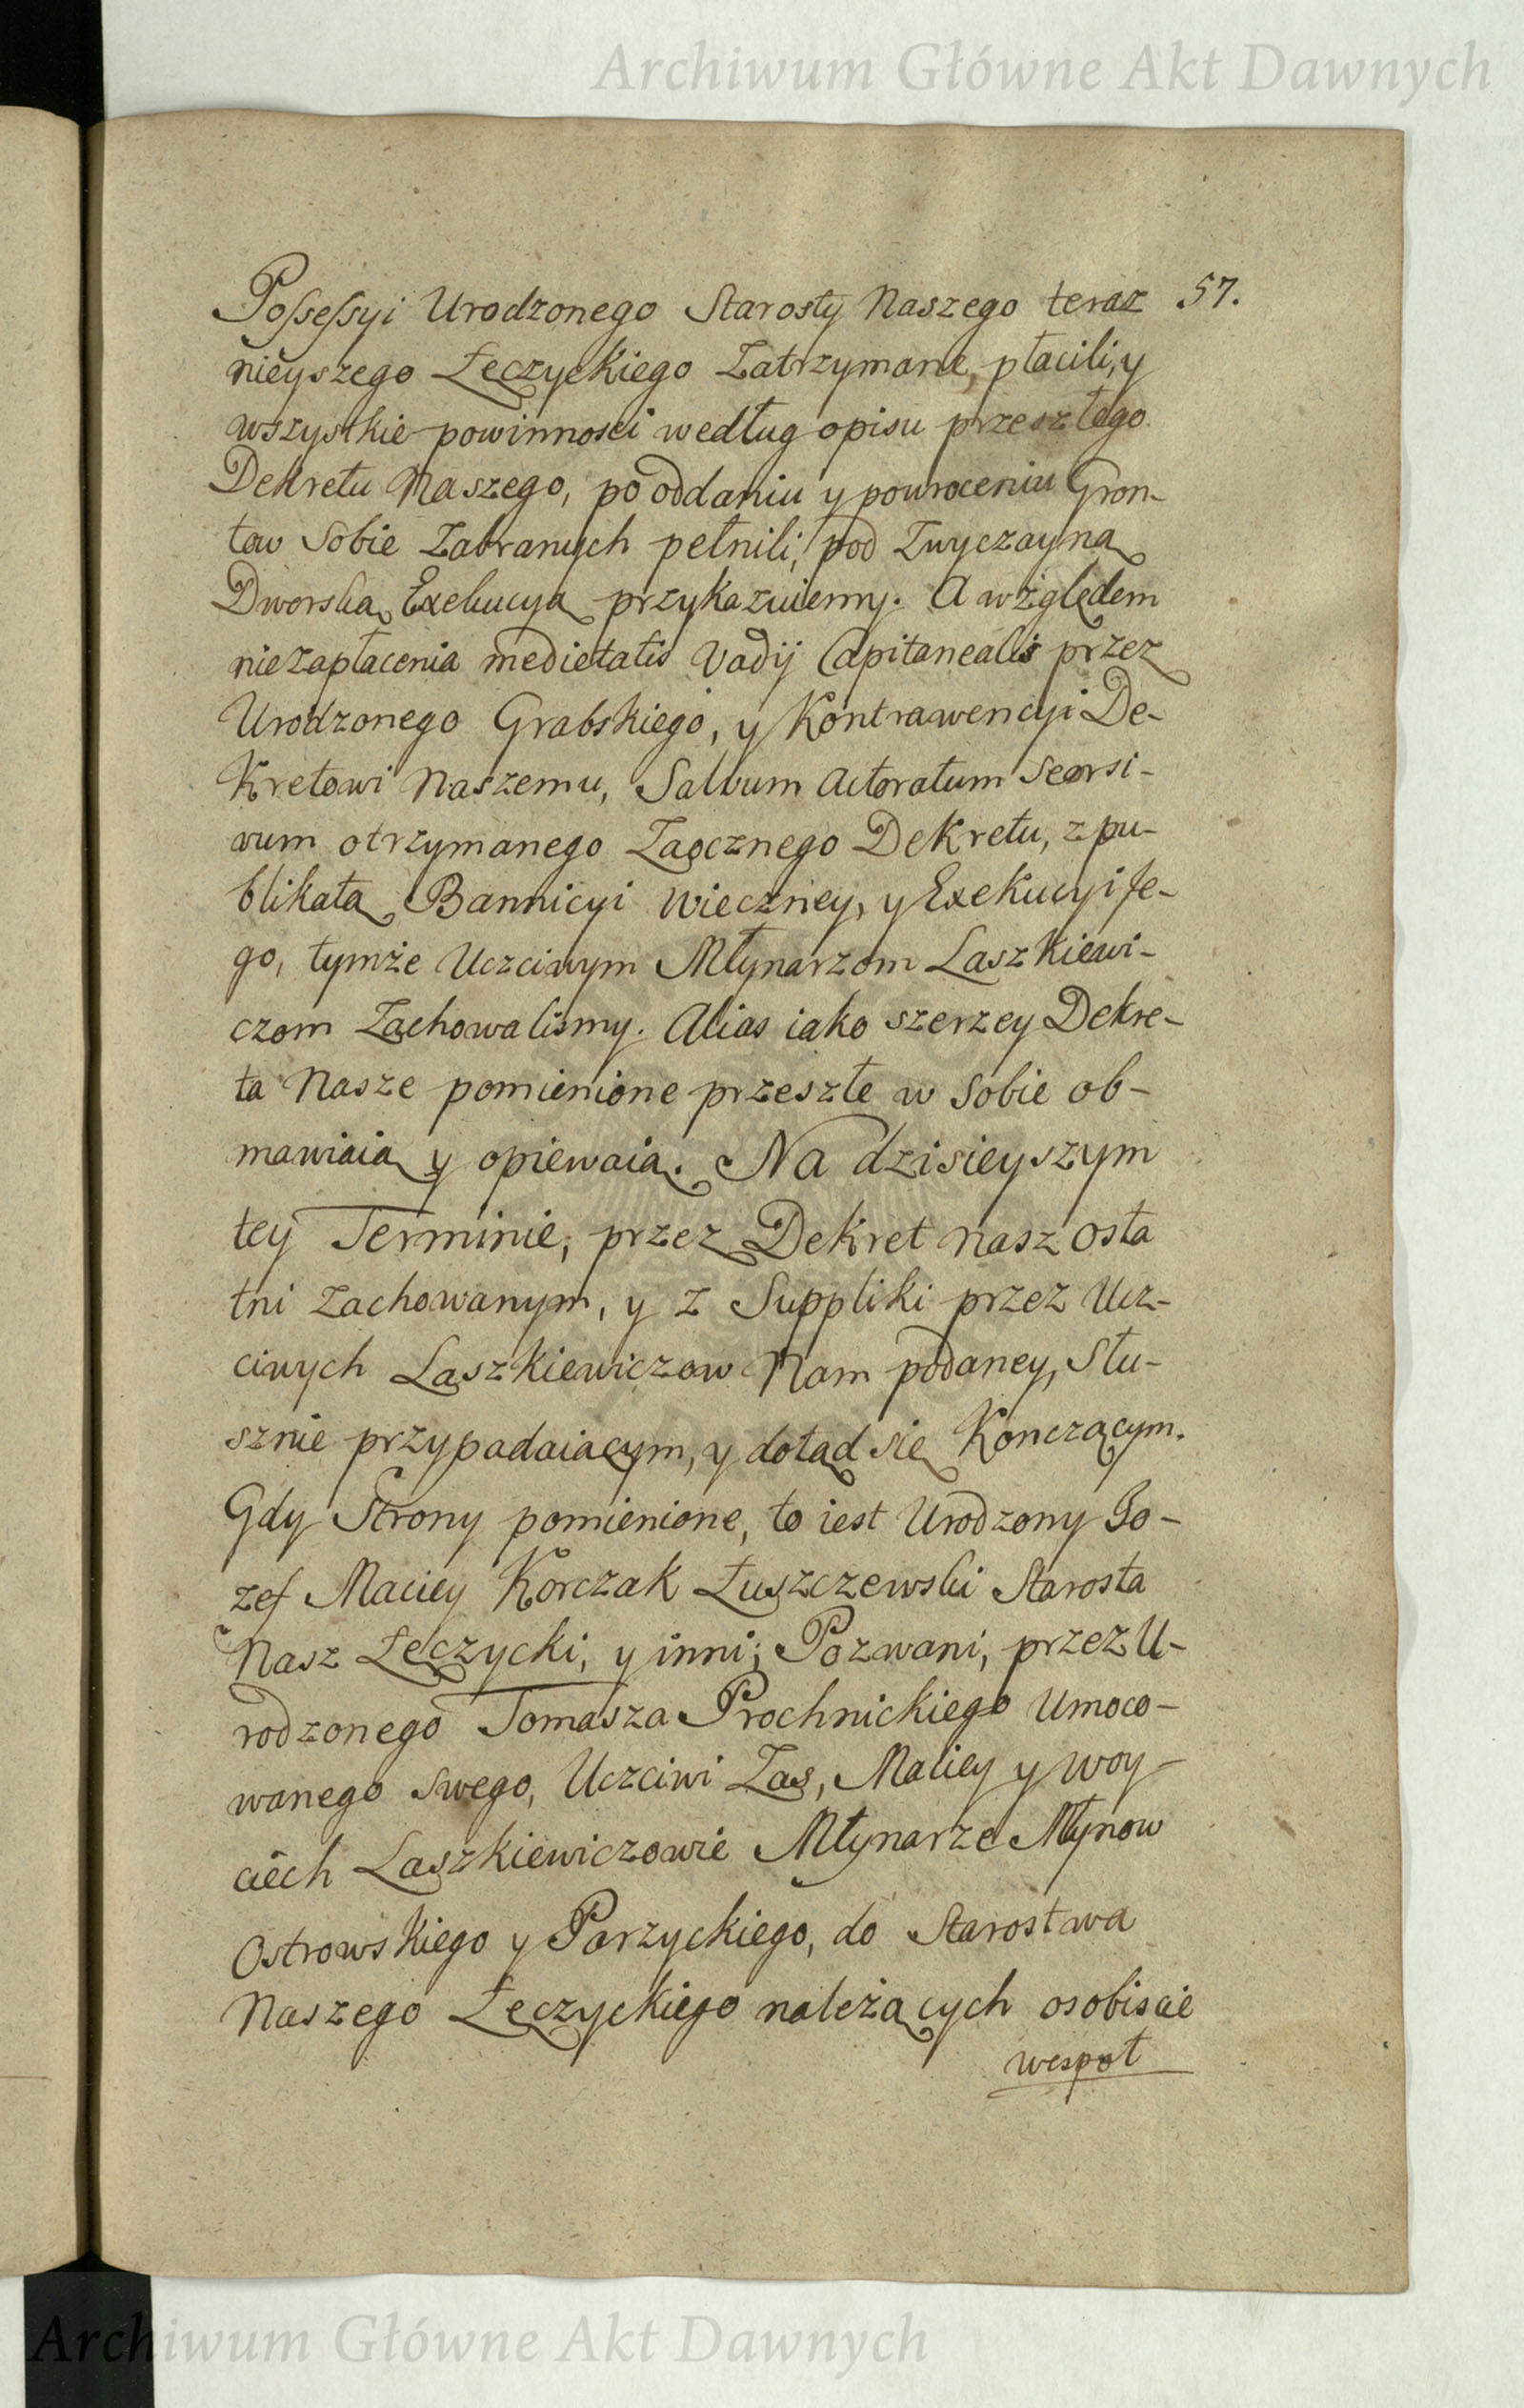 Archiwum Główne Akt Dawnych
57.
Possessyi Urodzonego Starosty Naszego teraz
nieyszego Łęczyckiego Zatrzymane, płacili, y
wszystkie powinnosci według opisu przeszłego
Dekretu Naszego, po oddaniu y powroceniu Gron-
tow Sobie Zabranych pełnili, pod Zwyczayną
Dworską Exekucyą przykazuiemy. A względem
niezapłacenia medietatis Vadij Capitanealis przez
Urodzonego Grabskiego, y Kontrawencyi De-
kretowi Naszemu, Salvum Actoratum Seorsi-
vum otrzymanego Zaocznego Dekretu, z pu-
blikatą Bannicyi Wieczney, y Exekucyi Je-
go, tymże Uczciwym Młynarzom Laszkiewi-
czom Zachowalismy. Alias iako szerzey Dekre-
ta Nasze pomienione przeszłe w Sobie ob-
mawiaią y opiewaią. Na dzisieyszym
tey Terminie, przez Dekret nasz osta
tni Zachowanym, y z Suppliki przez Ucz-
ciwych Laszkiewiczow Nam podaney, Słu-
sznie przypadaiącym, y dotąd się Konczącym.
Gdy Strony pomienione, to iest Urodzony Jo-
zef Maciey Korczak Łuszczewski Starosta
Nasz Łęczycki, y inni; Pozwani, przez U-
rodzonego Tomasza Prochnickiego Umoco-
wanego swego, Uczciwi Zas, Maciey y Woy-
ciech Laszkiewiczowie Młynarze Młynow
Ostrowskiego y Parzyckiego, do Starostwa
Naszego Łęczyckiego należących osobiscie
wespoł
Archiwum Główne Akt Dawnych